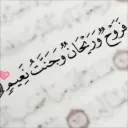 فَرَوْحٌ وَرَيْحَانٌ وَجَنَّتُ نَعِيمٍ